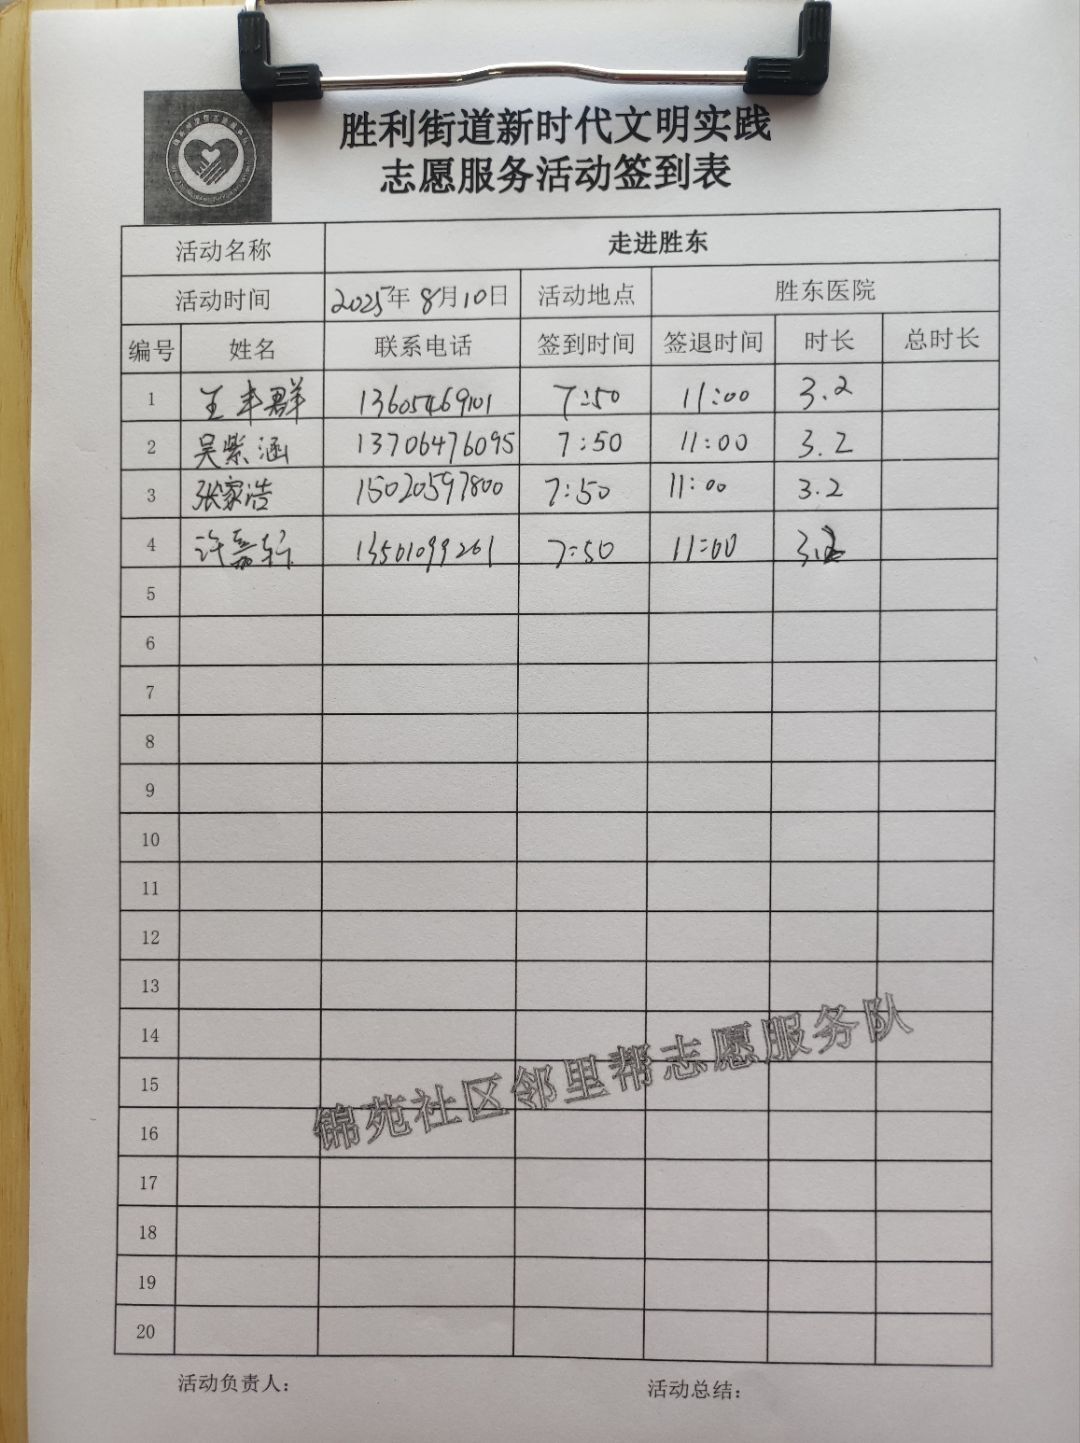 胜利街道新时代文明实践
志愿服务活动签到表
活动名称 走进胜东
活动时间 2025年8月10日 活动地点 胜东医院
编号 姓名 联系电话 签到时间 签退时间 时长 总时长
1 王丰群 13605469101 7:50 11:00 3.2
2 吴紫涵 13706476095 7:50 11:00 3.2
3 张家浩 15020597800 7:50 11:00 3.2
4 许嘉轩 13501099261 7:50 11:00 3.2
5
6
7
8
9
10
11
12
13
14
15
16
17
18
19
20
锦苑社区邻里帮志愿服务队
活动负责人： 活动总结：